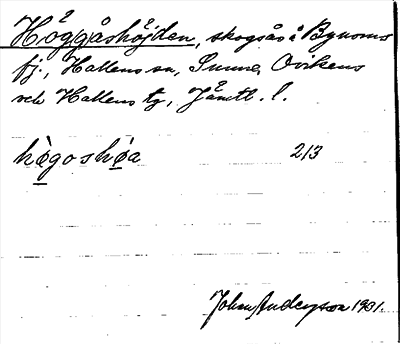 Höggåshöjden, skogsås å Bynoms
fj., Hallens sn, Sunne, Ovikens
och Hallens tg, Jämtl. l.
hògoshøa 213
John Anderson 1931.